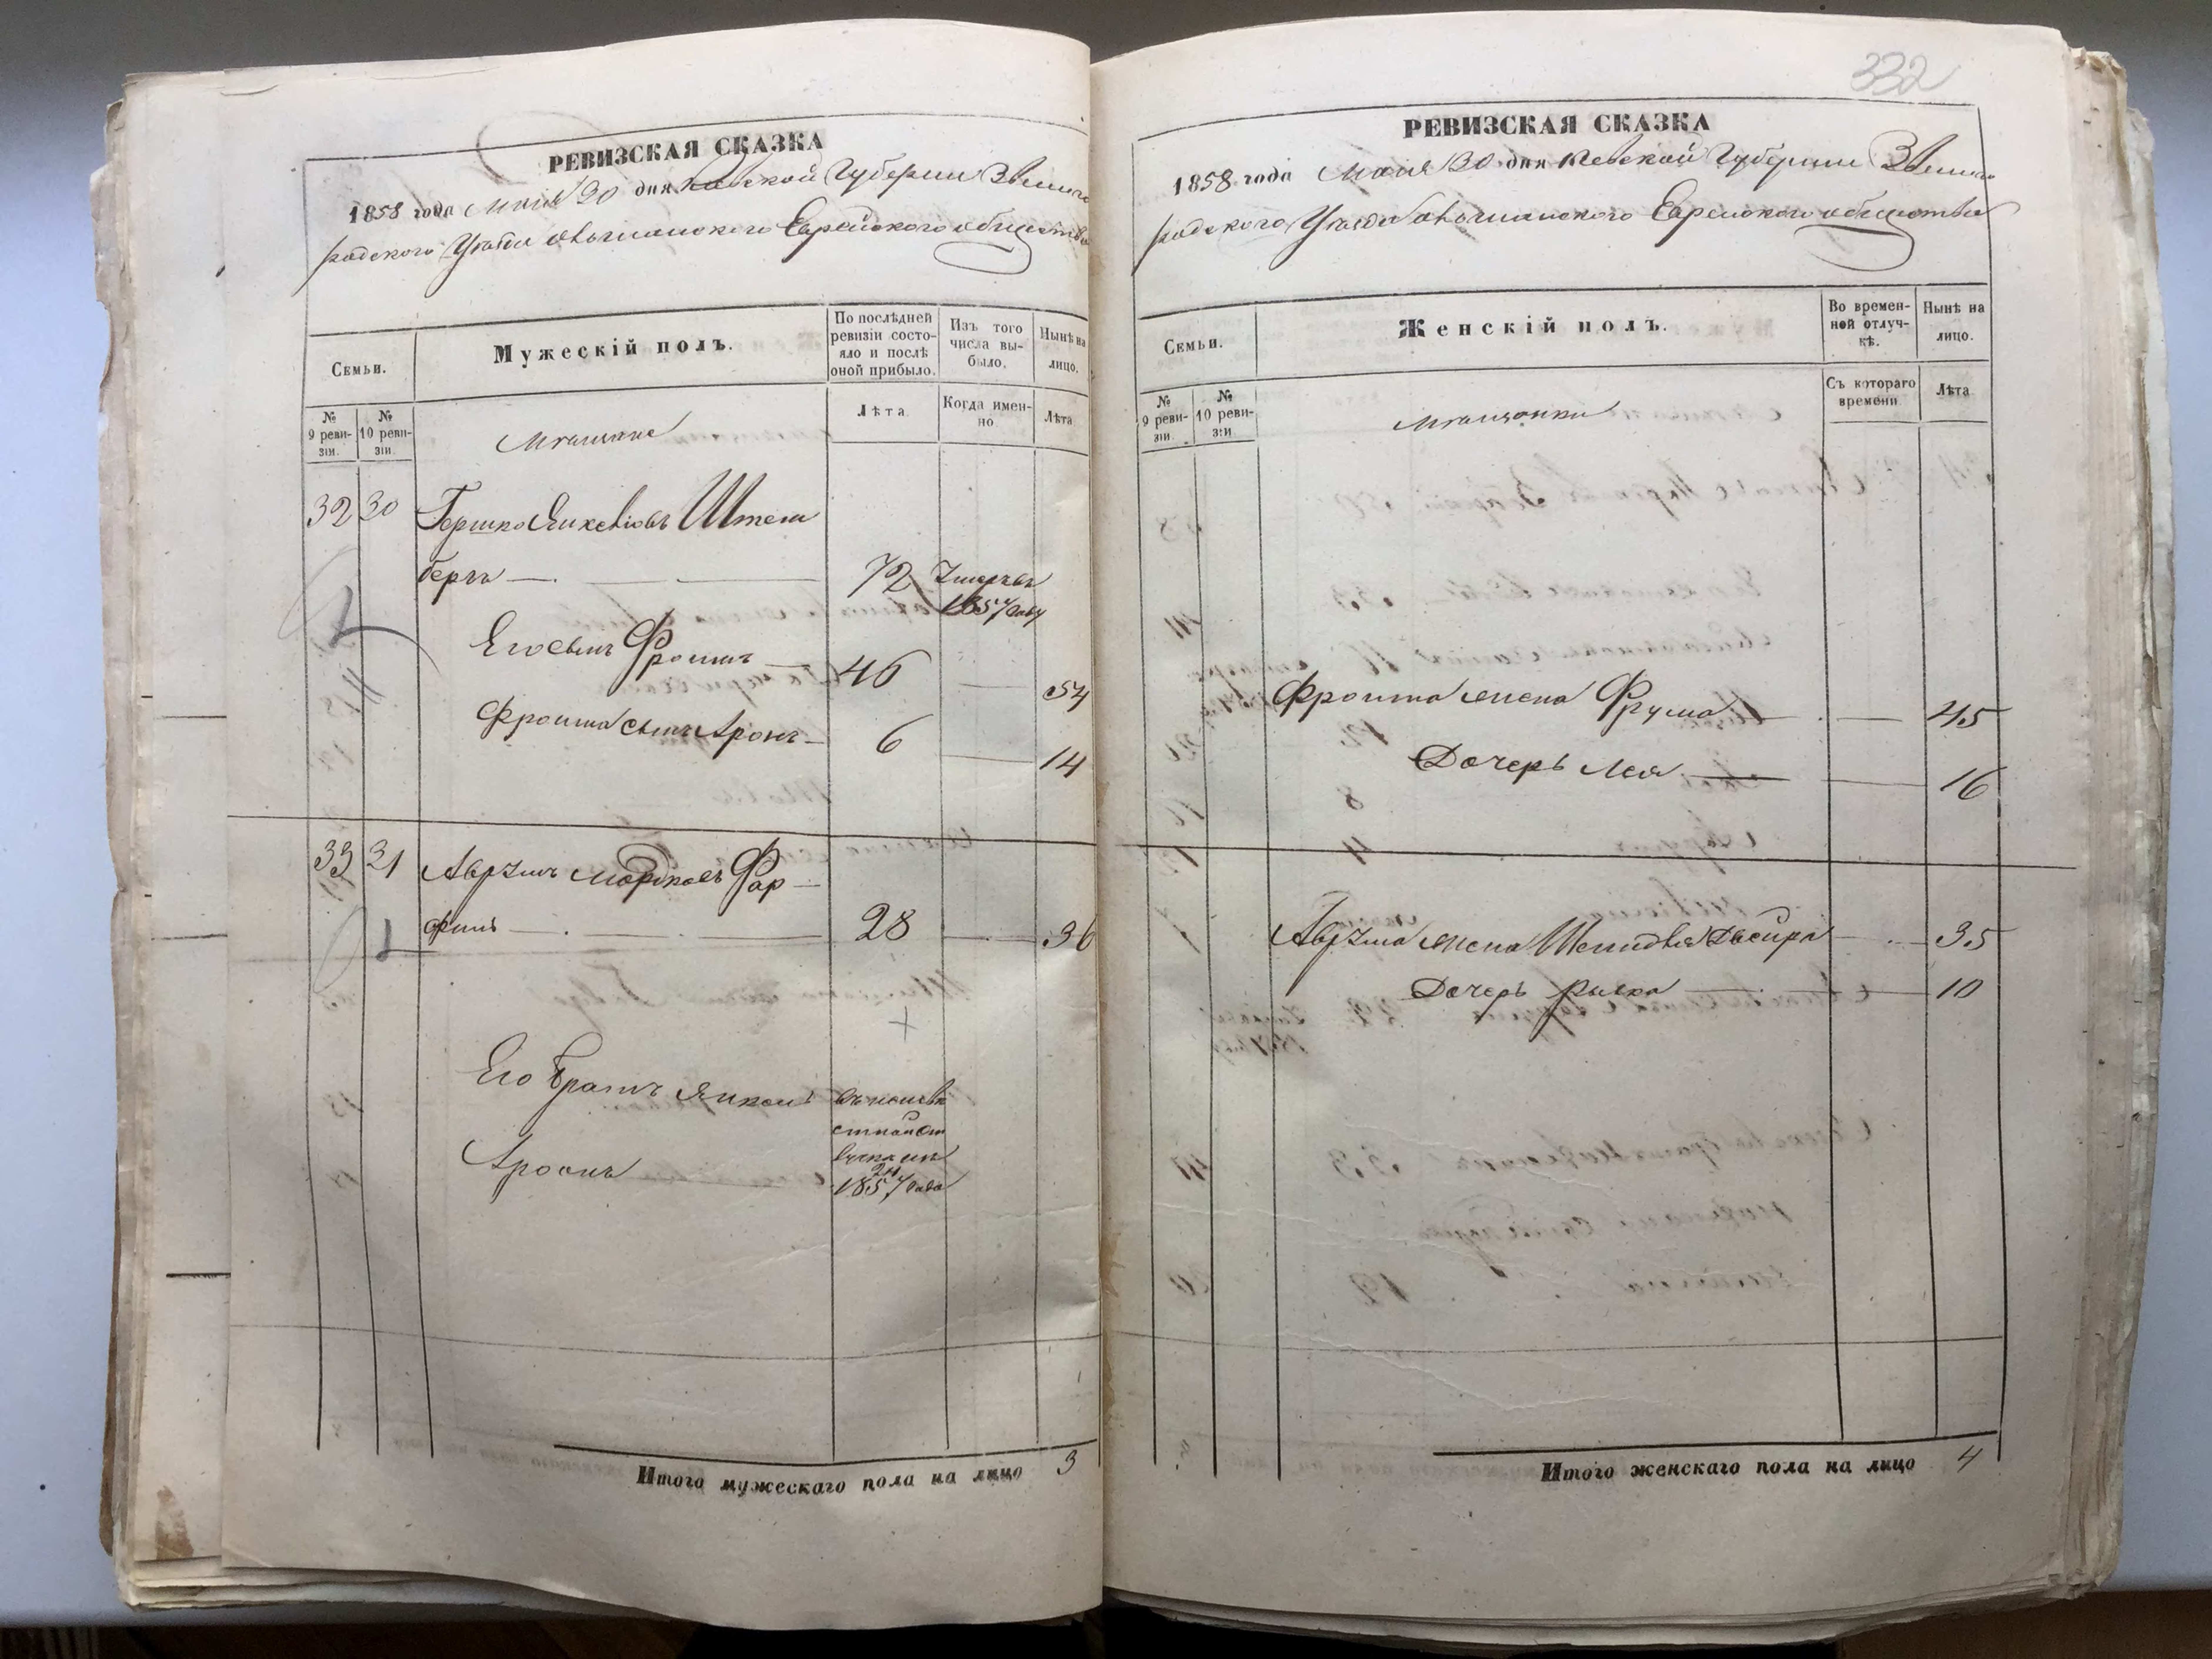 332
РЕВИЗСКАЯ СКАЗКА
1858 года Маия 30 дня Киевской Губернии Звениго
родского Уѣзда Еврейского общества
Семьи.
Мужескій полъ.
По послѣдней ревизіи состо-
яло и послѣ
оной прибыло.
Изъ того
числа вы-
было.
Нынѣ на
лицо.
№
9 реви-
зіи.
№
10 реви-
зіи.
Мѣщане
Лѣта
Когда имен-
но
Лѣта
32 30 Гершко Янкелiовъ Штейн
бергъ — 72 Умеръ въ
1857 году
Его сынъ Фроимъ — 46 — 54
Фроима сынъ Аронъ — 6 — 14
33 31 Аврумъ Мордковъ Фар-
филь — 28 — 36
Его братъ Янкель
Аронъ
1857 года
Итого мужескаго пола на лицо 3
РЕВИЗСКАЯ СКАЗКА
1858 года Маия 30 дня Киевской Губернии Звениго
родского Уѣзда Еврейского общества
Семьи.
Женскій полъ.
Во времен-
ной отлуч-
кѣ.
Нынѣ на
лицо.
№
9 реви-
зіи.
№
10 реви-
зіи
Мѣщанки
Съ котораго
времени
Лѣта
Фроима жена Фрума — 45
Дочерь Лея — 16
Аврума жена Двейра — 35
Дочерь Рывка — 10
Итого женскаго пола на лицо 4